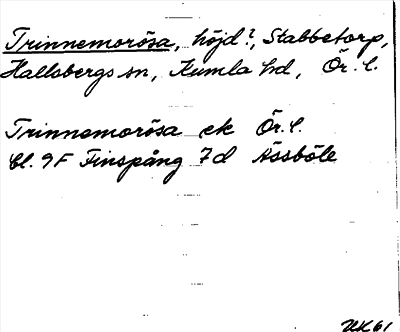 Trinnemorösa, höjd?, Stabbetorp,
Hallsbergs sn, Kumla hd, Ör. l.
Trinnemorösa ek Ör. l.
bl. 9F Finspång 7d Ässböle
UK 61